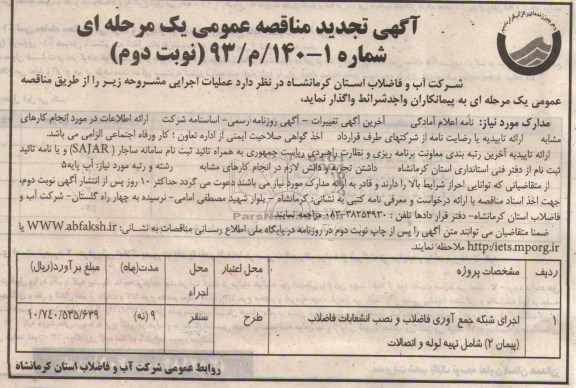 آگهی تجدید مناقصه عمومی یک مرحله ای
شماره ۱-۱۴۰/م/۹۳ (نوبت دوم)
شرکت آب و فاضلاب استان کرمانشاه در نظر دارد عملیات اجرایی مشروحه زیر را از طریق مناقصه
عمومی یک مرحله ای به پیمانکاران واجدشرائط واگذار نماید،
مدارک مورد نیاز: نامه اعلام آمادگی آخرین آگهی تغییرات - آگهی روزنامه رسمی- اساسنامه شرکت ارائه اطلاعات در مورد انجام کارهای
مشابه ارائه تاییدیه یا رضایت نامه از شرکتهای طرف قرارداد اخذ گواهی صلاحیت ایمنی از اداره تعاون ؛ کار ورفاه اجتماعی الزامی می باشد.
ارائه تاییدیه آخرین رتبه بندی معاونت برنامه ریزی و نظارت راهبردی ریاست جمهوری به همراه تائید ثبت نام سامانه ساجار (SAJAR) و یا نامه تائید
ثبت نام از دفتر فنی استانداری استان کرمانشاه داشتن تجربه و دانش لازم در انجام کارهای مشابه رشته و رتبه مورد نیاز: آب پایه۵
از متقاضیانی که توانایی احراز شرایط بالا را دارند و قادر به ارائه مدارک مورد نیاز می باشند دعوت می گردد حداکثر ۱۰ روز پس از انتشار آگهی نوبت دوم،
جهت اخذ اسناد مناقصه با ارائه درخواست و معرفی نامه کتبی به نشانی: کرمانشاه - بلوار شهید مصطفی امامی- نرسیده به چهار راه گلستان- شرکت آب و
فاضلاب استان کرمانشاه- دفتر قرار دادها تلفن : ۳۸۲۵۴۹۳۰-۰۸۳ مراجعه نمایند.
ضمنا متقاضیان می توانند متن آگهی را پس از چاپ نوبت دوم در روزنامه در پایگاه ملی اطلاع رسانی مناقصات به نشانی: WWW.abfaksh.ir یا
http:/iets.mporg.ir ملاحظه نمایند.
ردیف مشخصات پروژه محل اعتبار محل اجراء مدت(ماه) مبلغ برآورد(ریال)
۱ اجرای شبکه جمع آوری فاضلاب و نصب انشعابات فاضلاب طرح سنقر ۹ (نه) ۱۰/۷۴۰/۵۳۵/۶۳۹
(پیمان ۲) شامل تهیه لوله و اتصالات
روابط عمومی شرکت آب و فاضلاب استان کرمانشاه